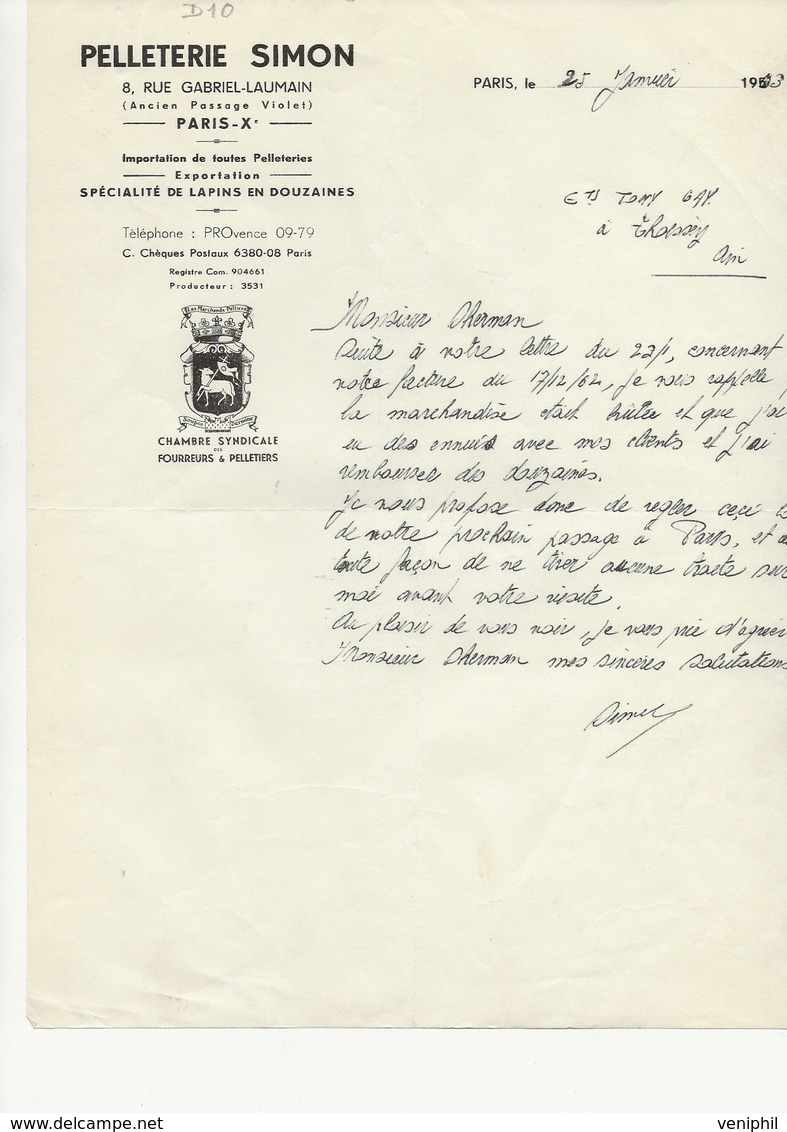 D10
PELLETERIE SIMON
8, RUE GABRIEL-LAUMAIN
(Ancien Passage Violet)
PARIS-Xe
Importation de toutes Pelleteries
Exportation
SPÉCIALITÉ DE LAPINS EN DOUZAINES
Téléphone : PROvence 09-79
C. Chèques Postaux 6380-08 Paris
Registre Com. 904661
Producteur : 3531
Les Marchands Pelletiers
CHAMBRE SYNDICALE
DES
FOURREURS & PELLETIERS
PARIS, le 25 Janvier 1963
Ets Tony GAY.
à Thoissey
Ain
Monsieur Sherman
Suite à votre lettre du 22/1, concernant
votre facture du 17/12/62, je vous rappelle
la marchandise était brûlée et que j'ai
eu des ennuis avec mes clients et j'ai
rembourser des douzaines.
Je vous propose donc de regler ceci
de votre prochain passage à Paris, et
toute façon de ne tirer aucune traite sur
moi avant votre visite.
Au plaisir de vous voir, je vous prie d'agréer
Monsieur Sherman mes sincères salutations
Simon
veniphil